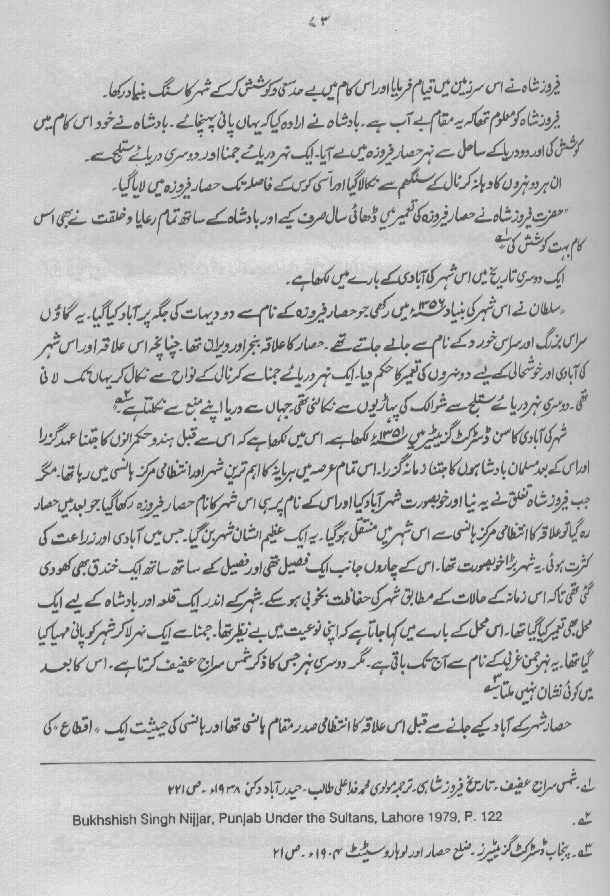 ۷۳
فیروز شاہ نے اس سرزمین میں قیام فرمایا اور اس کام میں بے حد سعی و کوشش کر کے شہر کا سنگ بنیاد رکھا۔
فیروز شاہ کو معلوم تھا کہ یہ مقام بے آب ہے۔ بادشاہ نے ارادہ کیا کہ یہاں پانی پہنچائے۔ بادشاہ نے خود اس کام میں
کوشش کی اور دو دریا کے ساحل سے نہر حصار فیروزہ میں لے آیا۔ ایک نہر دریائے جمنا اور دوسری دریائے ستلج سے۔
ان ہر دو نہروں کا دہانہ کرنال کے سنگھم سے نکالا گیا اور اسّی کوس کے فاصلہ تک حصار فیروزہ میں لایا گیا۔
"حضرت فیروز شاہ نے حصار فیروزہ کی تعمیر میں ڈھائی سال صرف کیے اور بادشاہ کے ساتھ تمام رعایا و خلقت نے بھی اس
کام بہت کوشش کی۱ے
ایک دوسری تاریخ میں اس شہر کی آبادی کے بارے میں لکھا ہے۔
"سلطان نے اس شہر کی بنیاد ۱۳۵۶ء میں رکھی جو حصار فیروزہ کے نام سے دو دیہات کی جگہ پر آباد کیا گیا۔ یہ گاؤں
سراس بزرگ اور سراس خورد کے نام سے جانے جاتے تھے۔ حصار کا علاقہ بنجر اور ویران تھا۔ چنانچہ اس علاقہ اور اس شہر
کی آبادی اور خوشحالی کے لیے دو نہروں کی تعمیر کا حکم دیا۔ ایک نہر دریائے جمنا سے کرنال کے نواح سے نکال کر یہاں تک لانی
تھی۔ دوسری نہر دریائے ستلج سے شوالک کی پہاڑیوں سے نکالنی تھی، جہاں سے دریا اپنے منبع سے نکلتا ہے۲ے
شہر کی آبادی کا سن ڈسٹرکٹ گزیٹیئر میں ۱۳۵۱ء لکھا ہے۔ اس میں لکھا ہے کہ اس سے قبل ہندو حکمرانوں کا جتنا عہد گزرا
اور اس کے بعد مسلمان بادشاہوں کا جتنا زمانہ گزرا۔ اس تمام عرصہ میں ہریانہ کا اہم ترین شہر اور انتظامی مرکز ہانسی میں رہا تھا۔ مگر
جب فیروز شاہ تغلق نے یہ نیا اور خوبصورت شہر آباد کیا اور اس کے نام پر ہی اس شہر کا نام حصار فیروزہ رکھا گیا جو بعد میں حصار
رہ گیا تو علاقہ کا انتظامی مرکز ہانسی سے اس شہر میں منتقل ہو گیا۔ یہ ایک عظیم الشان شہر بن گیا۔ جس میں آبادی اور زراعت کی
کثرت ہوئی۔ یہ شہر بڑا خوبصورت تھا۔ اس کے چاروں جانب ایک فصیل تھی اور فصیل کے ساتھ ساتھ ایک خندق بھی کھودی
گئی تھی تاکہ اس زمانہ کے حالات کے مطابق شہر کی حفاظت بخوبی ہو سکے۔ شہر کے اندر ایک قلعہ اور بادشاہ کے لیے ایک
محل بھی تعمیر کیا گیا تھا۔ اس محل کے بارے میں کہا جاتا ہے کہ اپنی نوعیت میں بے نظیر تھا۔ جمنا سے ایک نہر لا کر شہر کو پانی مہیا کیا
گیا تھا۔ یہ نہر جمن غربی کے نام سے آج تک باقی ہے۔ مگر دوسری نہر جس کا ذکر شمس سراج عفیف کرتا ہے۔ اس کا بعد
میں کوئی نشان نہیں ملتا۳ے
حصار شہر کے آباد کیے جانے سے قبل اس علاقہ کا انتظامی صدر مقام ہانسی تھا اور ہانسی کی حیثیت ایک "اقطاع" کی
۱ے۔ شمس سراج عفیف۔ تاریخ فیروز شاہی۔ ترجمہ مولوی محمد فدا علی طالب۔ حیدر آباد دکن ۱۹۳۸ء۔ ص ۲۲۱
۲ے۔ Bukhshish Singh Nijjar, Punjab Under the Sultans, Lahore 1979, P. 122
۳ے۔ پنجاب ڈسٹرکٹ گزیٹیئرز۔ ضلع حصار اور لوہارو سٹیٹ ۱۹۰۴ء۔ ص ۲۱